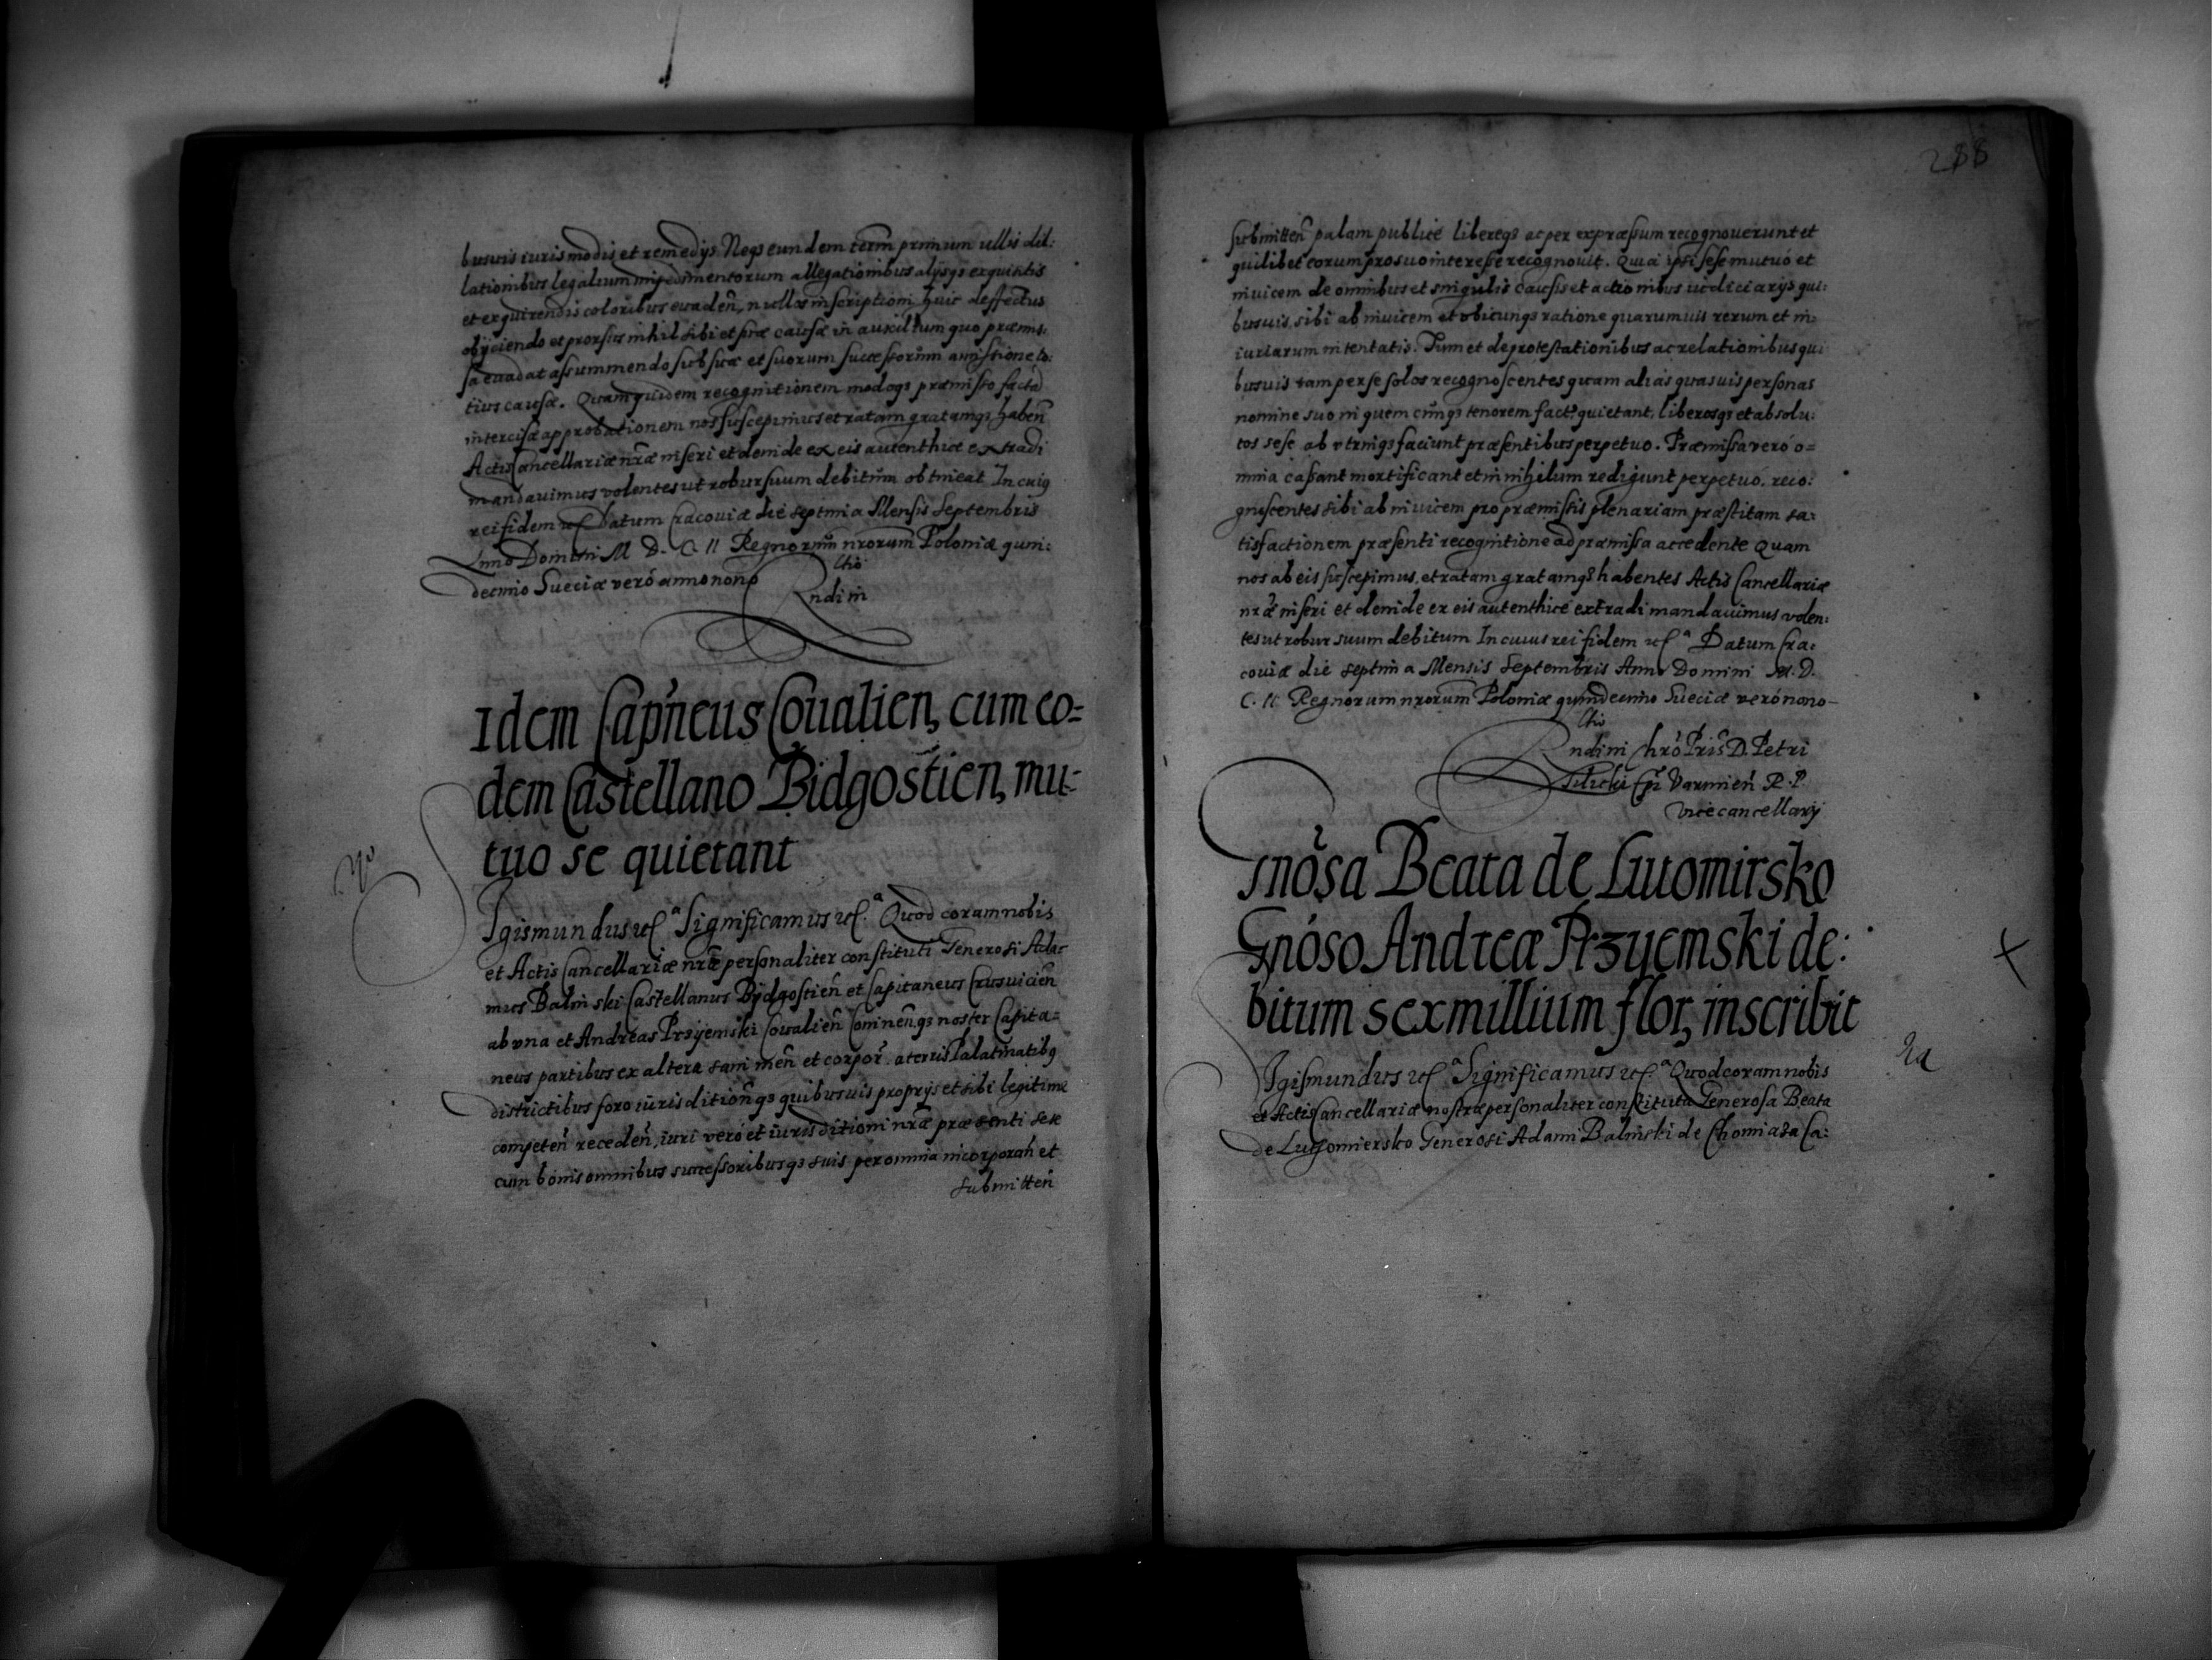 busuis iuris modis et remedys. Neqз eundem term̃ primum ullis dil:
lationibus legalium impedimentorum allegationibus alysqз exquisitis
et exquirendis coloribus euaden̄, nullos inscriptioni huic deffectus
obyciendo et prorsus nihil sibi et præ causæ in auxilium quo præmis:
sa euadat assummendo sub suæ et suorum successorum amissione to:
tius causæ. Quamquidem recognitionem modoqз præmisso factā
intercisæ approbationem nos suscepimus et ratam gratamqз haben̄
Actis Cancellariæ nr̄æ inseri et deinde ex eis autenthice extradi
mandauimus volentes ut robur suum debitum obtineat In cuiꝯ
rei fidem etc Datum Cracouiæ die septima Mensis Septembris
Anno Domini M. D. C. II Regnorum nrorum Poloniæ quin:
decimo Sueciæ veró anno nono
Ctio
Rndi m
Idem Cap̄neus Coualien, cum eo=
dem Castellano Bidgostien, mu:
tuo se quietant
Sigismundus etc.ᵃ Significamus etc.ᵃ Quod coram nobis
et Actis Cancellariæ nr̄æ personaliter constituti Generosi Ada=
mus Balinski Castellanus Bydgostien̄ et Capitaneus Crusuicien̄
ab vna et Andreas Przyemski Coualien̄ Coninen̄qз noster Capita=
neus partibus ex altera sani men̄ et corpor̄. a terris Palatinatibꝯ
districtibus foro iurisdition̄qз quibusuis proprys et sibi legitime
competen̄ receden̄, iuri veró et iurisditioni nr̄æ præsenti sese
cum bonis omnibus successoribusqз suis per omnia incorporan̄ et
submitten̄
288
submitten̄ palam publicè libereqз ac per expræssum recognouerunt et
quilibet eorum pro suo interesse recognouit. Quia ipsi sese mutuó et
inuicem de omnibus et singulis causis et actionibus iudiciarys qui:
busuis sibi ab inuicem et vbicunqз ratione quarumuis rerum et in:
iuriarum intentatis. Tum et de protestationibus ac relationibus qui:
busuis tam per se solos recognoscentes quam aliás quasuis personas
nomine suo in quem cūnqз tenorem fact̄. quietant, liberosqз et absolu:
tos sese ab vtrinqз faciunt præsentibus perpetuo. Præmissa veró o=
mnia cassant mortificant et in nihilum redigunt perpetuó. reco:
gnoscentes sibi ab inuicem pro præmissis plenariam præstitam sa:
tisfactionem præsenti recognitione ad præmissa accedente Quam
nos ab eis suscepimus, et ratam gratamqз habentes Actis Cancellariæ
nr̄æ inseri et deinde ex eis autenthicé extradi mandauimus volen:
tes ut robur suum debitum In cuius rei fidem etc.ᵃ Datum Cra:
couiæ die septima Mensis Septembris Anno Domini M. D.
C. II. Regnorum nrorum Poloniæ quindecimo Sueciæ veró nono
Ctio
Rndi in Chrō Pris D. Petri
Tilicki Epī Varmien̄ R. P.
Vicecancellarij
Gnōsa Beata de Lutomirsko
Gnóso Andreæ Przyemski de:
bitum sex millium flor, inscribit
Sigismundus etc.ᵃ Significamus etc.ᵃ Quod coram nobis
et Actis Cancellariæ nostræ personaliter constituta Generosa Beata
de Lutomiersko Generosi Adami Balinski de Chomiąża Ca: